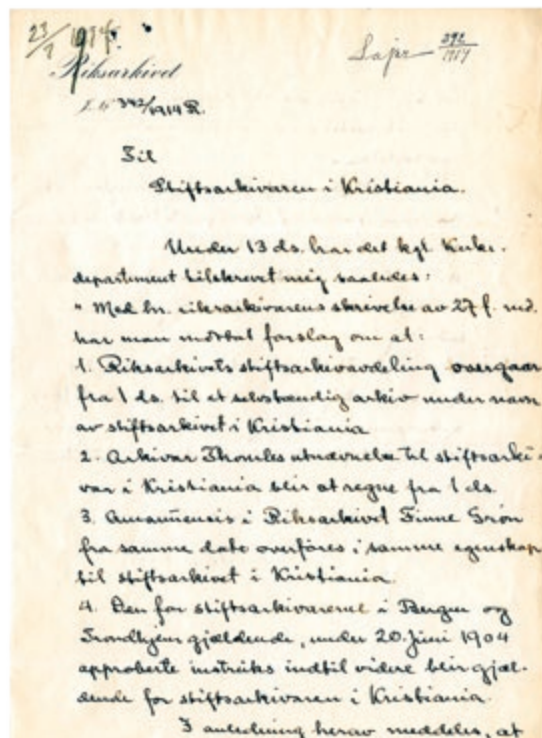 23/7 1914.
Lapr 392/1914
Riksarkivet
L. nr 342/1914 R.
Til
Stiftsarkivaren i Kristiania.
Under 13 ds. har det kgl. Kirke-
departement tilskrevet mig saaledes:
"Med hr. riksarkivarens skrivelse av 27 f. md.
har man mottat forslag om at:
1. Riksarkivets stiftsarkivavdeling overgaar
fra 1 ds. til et selvstændig arkiv under navn
av stiftsarkivet i Kristiania
2. Arkivar Thomles utnævnelse til stiftsarki-
var i Kristiania blir at regne fra 1 ds.
3. Amanuensis i Riksarkivet Finne Grøn
fra samme dato overføres i samme egenskap
til stiftsarkivet i Kristiania.
4. Den for stiftsarkivarerne i Bergen og
Trondhjem gjældende, under 20. Juni 1904
approberte instruks indtil videre blir gjæl-
dende for stiftsarkivaren i Kristiania.
I anledning herav meddeles, at